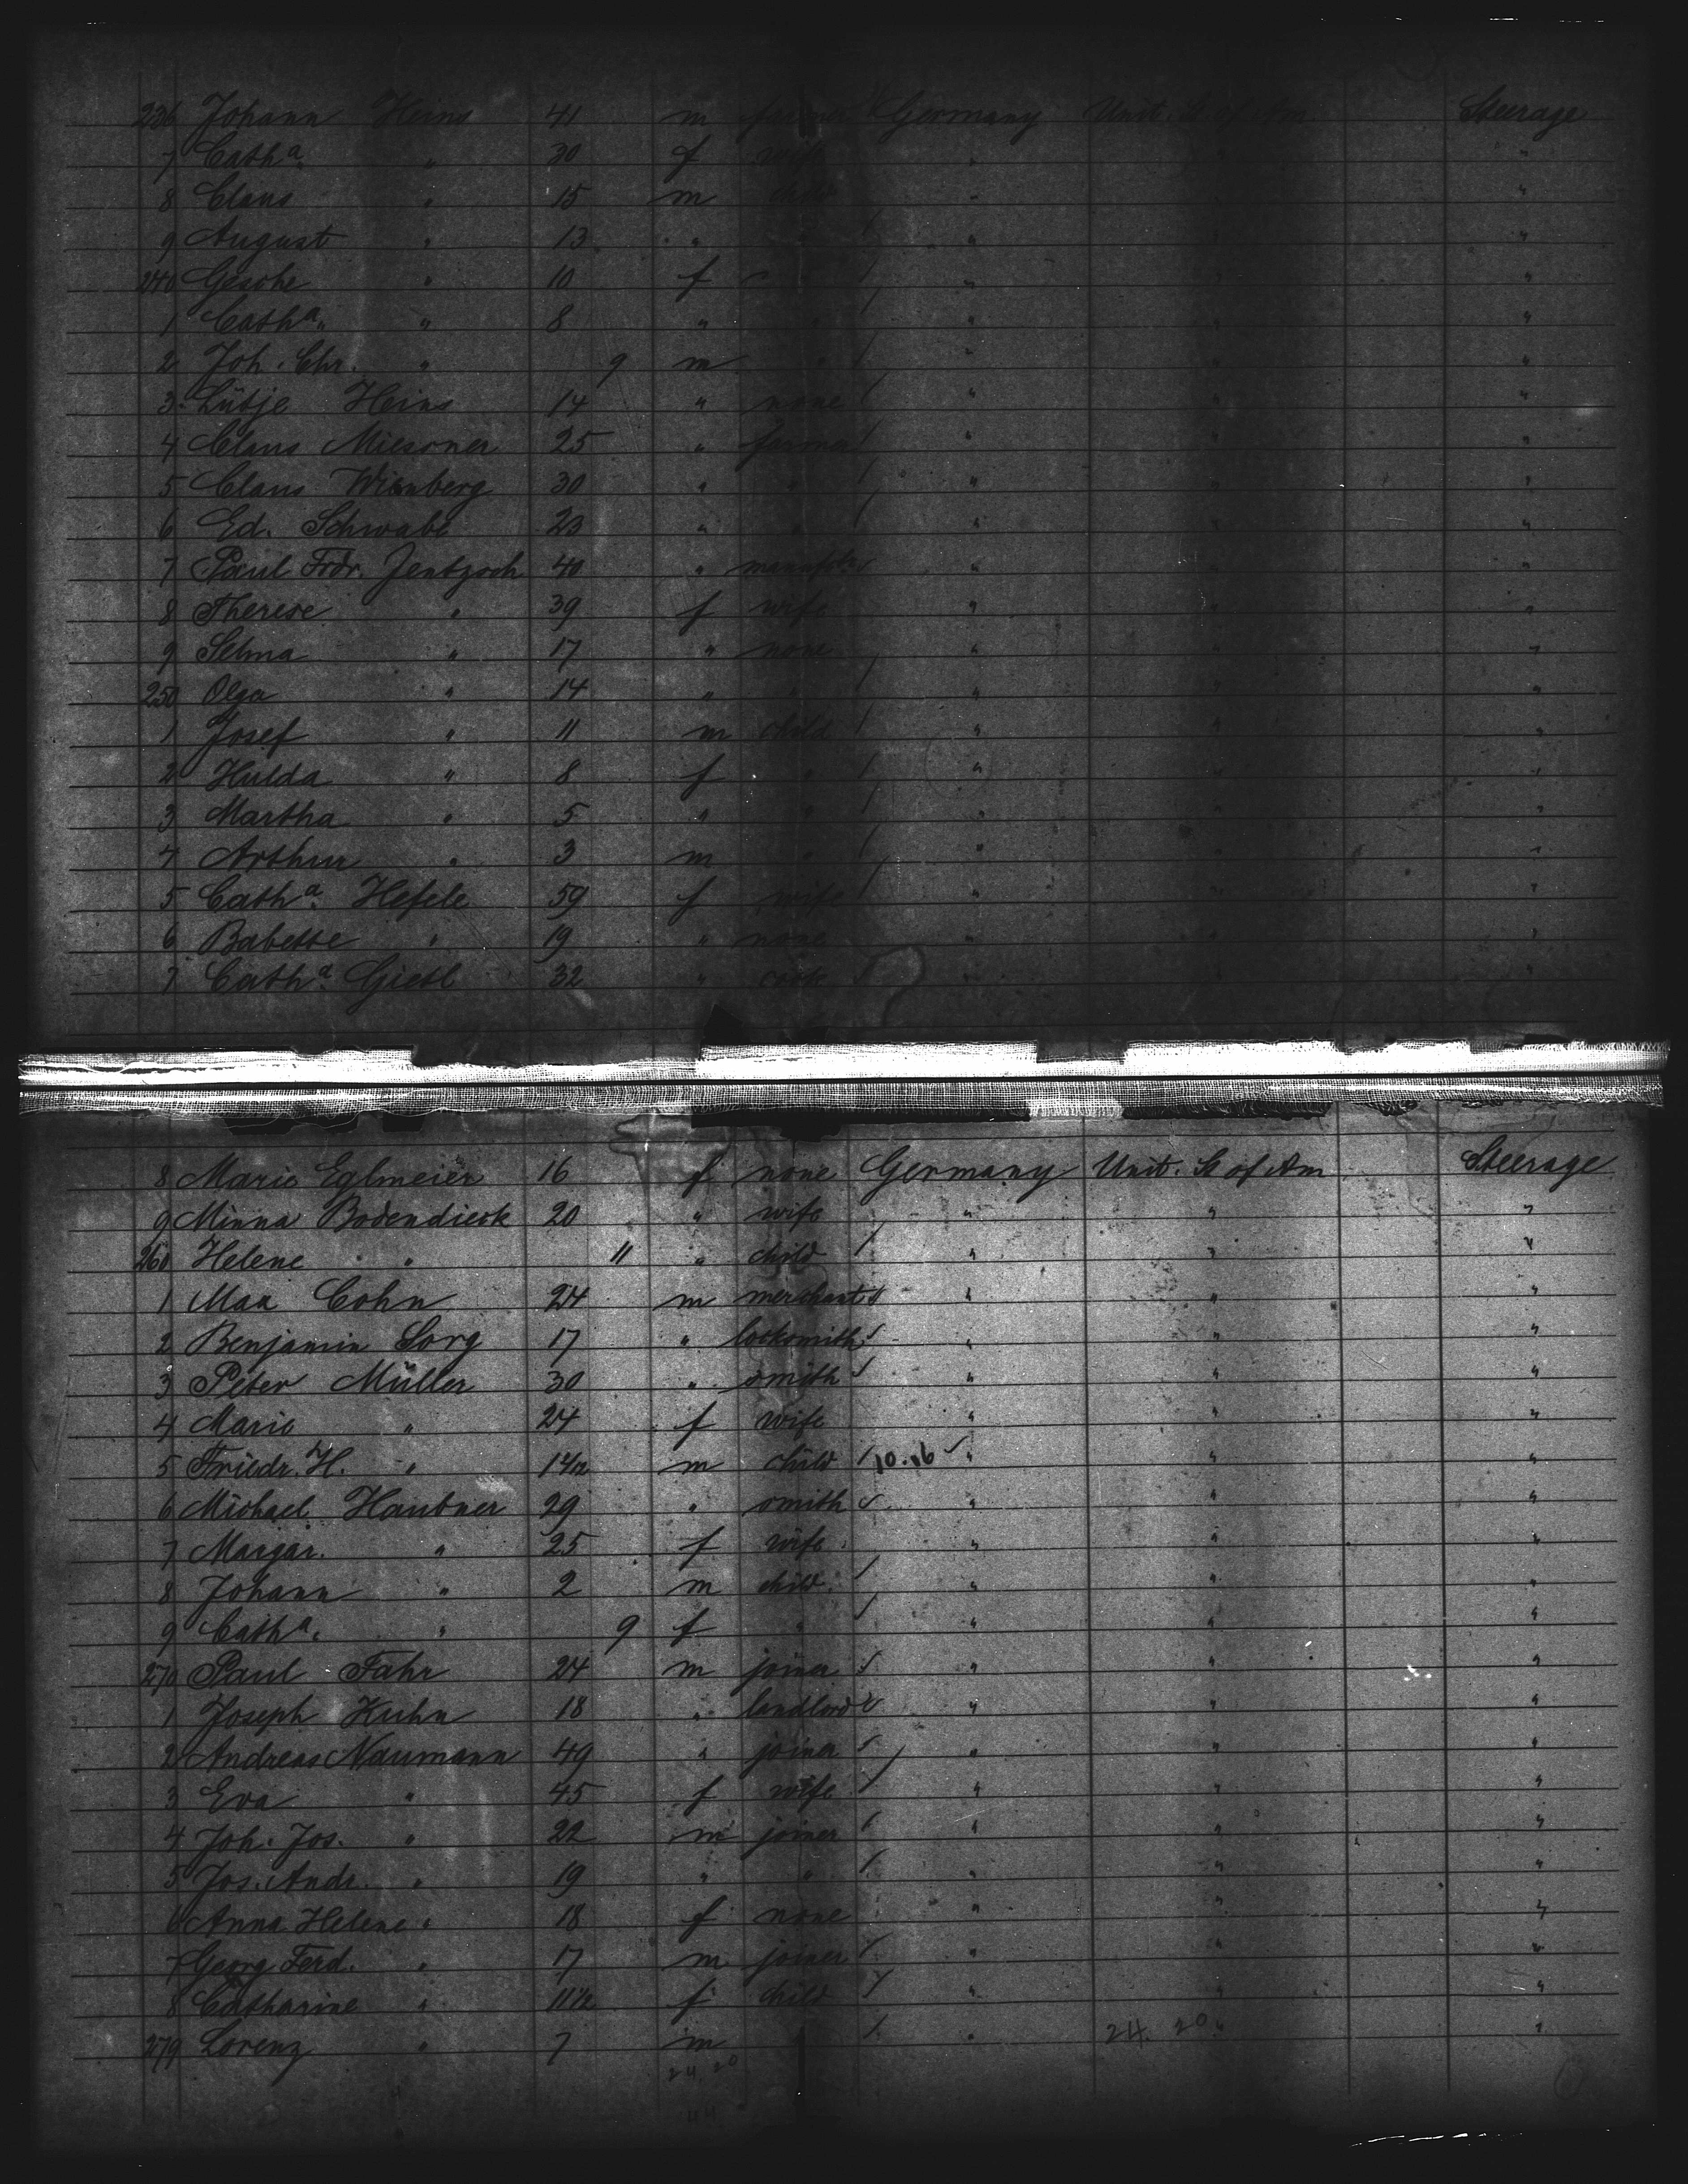 236 Johann Heins 41 m farmer Germany Unit. St of Am Steerage
7 Cath.a " 30 f wife " " "
8 Claus " 15 m child " " "
9 August " 13 " " " " "
240 Gesche " 10 f " " " "
1 Cath.a " 8 " " " " "
2 Joh. Chr. " 9 m " " " "
3 Lütje Heins 14 " none " " "
4 Claus Miesner 25 " farmer " " "
5 Claus Wienberg 30 " " " " "
6 Ed. Schwabe 23 " " " " "
7 Paul Frdr. Jentzsch 40 " " " "
8 Therese " 39 f wife " " "
9 Selma " 17 " none " " "
250 Olga " 14 " " " " "
1 Josef " 11 m child " " "
2 Hulda " 8 f " " " "
3 Martha " 5 " " " " "
4 Arthur " 3 m " " " "
5 Cath.a Hefele 59 f wife " " "
6 Babette " 19 " none " " "
7 Cath.a Gietl 32 " cook " " "
8 Marie Eglmeier 16 f none Germany Unit. St of Am Steerage
9 Minna Bodendieck 20 " wife " " "
260 Helene " 11 " child " " "
1 Max Cohn 24 m merchant " " "
2 Benjamin Sorg 17 " locksmith " " "
3 Peter Müller 30 " smith " " "
4 Marie " 24 f wife " " "
5 Friedr. H. " 1 1/2 m child 10.16 " " "
6 Michael Haubner 29 " smith " " "
7 Margar. " 25 f wife " " "
8 Johann " 2 m child " " "
9 Cath.a " 9 f " " " "
270 Paul Fahr 24 m joiner " " "
1 Joseph Kuhn 18 " landlord " " "
2 Andreas Naumann 49 " joiner " " "
3 Eva " 45 f wife " " "
4 Joh. Jos. " 22 m joiner " " "
5 Jos. Andr. " 19 " " " " "
6 Anna Helene " 18 f none " " "
7 Georg Ferd. " 17 m joiner " " "
8 Catharine " 11 1/2 f child " " "
279 Lorenz " 7 m " 24. 20 " "
24. 20